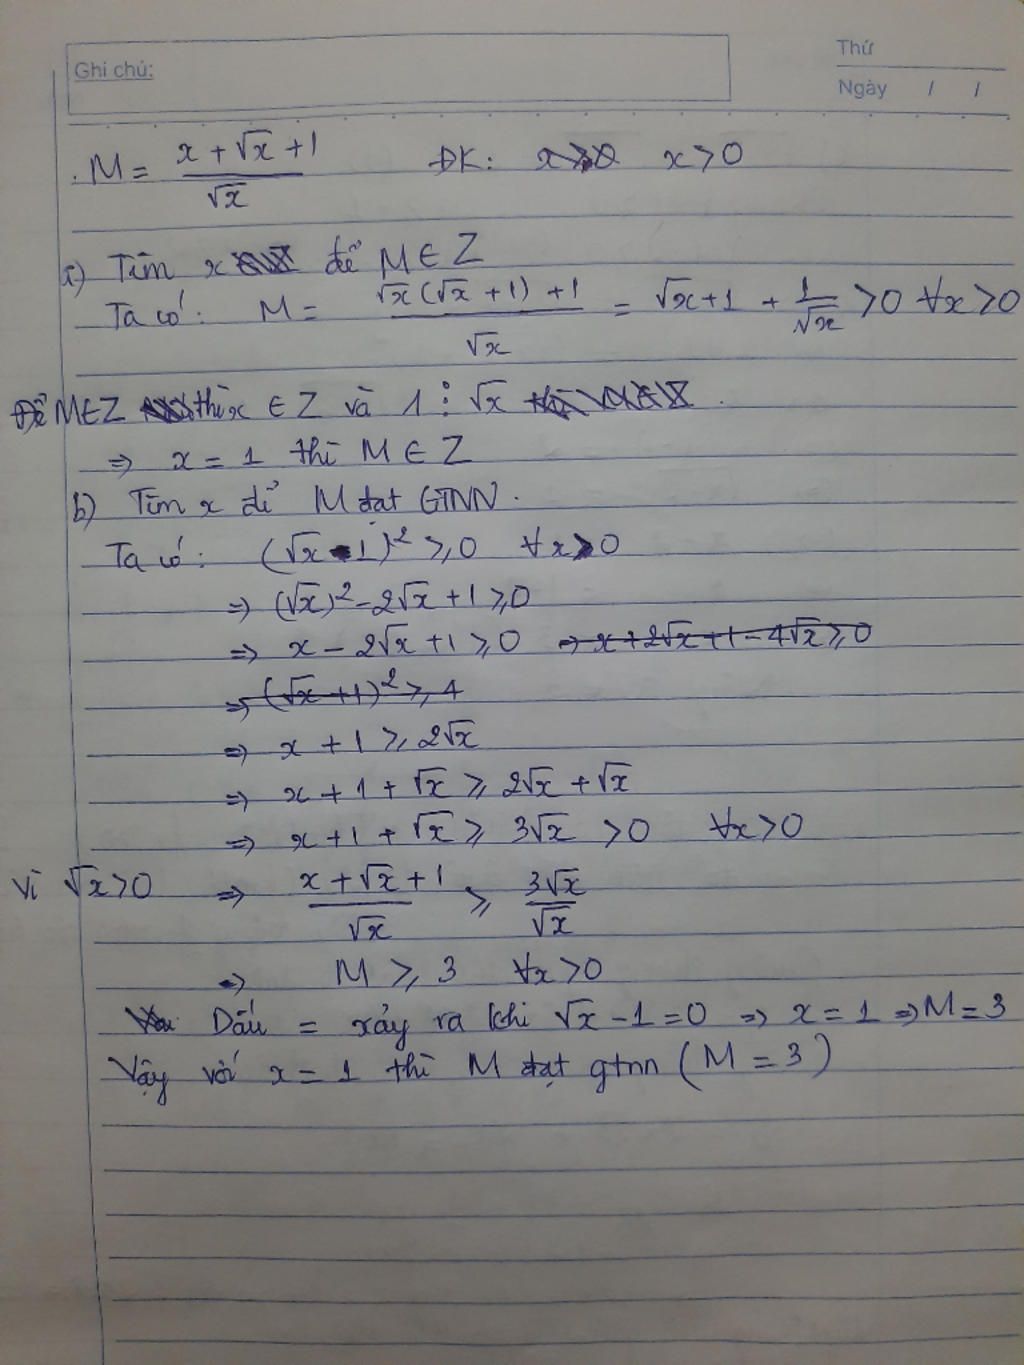 Thứ
Ghi chú:
Ngày / /
. M = (x + √x + 1)/√x ĐK: x > 0
a) Tìm x để M ∈ Z
Ta có: M = (√x(√x + 1) + 1)/√x = √x + 1 + 1/√x > 0 ∀x > 0
Để M ∈ Z thì x ∈ Z và 1 ⋮ √x .
⇒ x = 1 thì M ∈ Z
b) Tìm x để M đạt GTNN.
Ta có: (√x - 1)² ≥ 0 ∀x > 0
⇒ (√x)² - 2√x + 1 ≥ 0
⇒ x - 2√x + 1 ≥ 0 ⇒ x + 2√x + 1 - 4√x ≥ 0
⇒ (√x + 1)² ≥ 4
⇒ x + 1 ≥ 2√x
⇒ x + 1 + √x ≥ 2√x + √x
⇒ x + 1 + √x ≥ 3√x > 0 ∀x > 0
Vì √x > 0 ⇒ (x + √x + 1)/√x ≥ 3√x/√x
⇒ M ≥ 3 ∀x > 0
Dấu = xảy ra khi √x - 1 = 0 ⇒ x = 1 ⇒ M = 3
Vậy với x = 1 thì M đạt gtnn (M = 3)